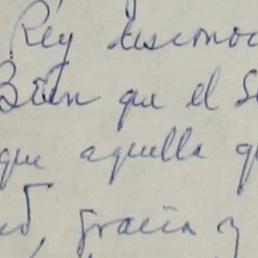 Rey desconoc
Bien que el S
que aquella q
ud, gracia y